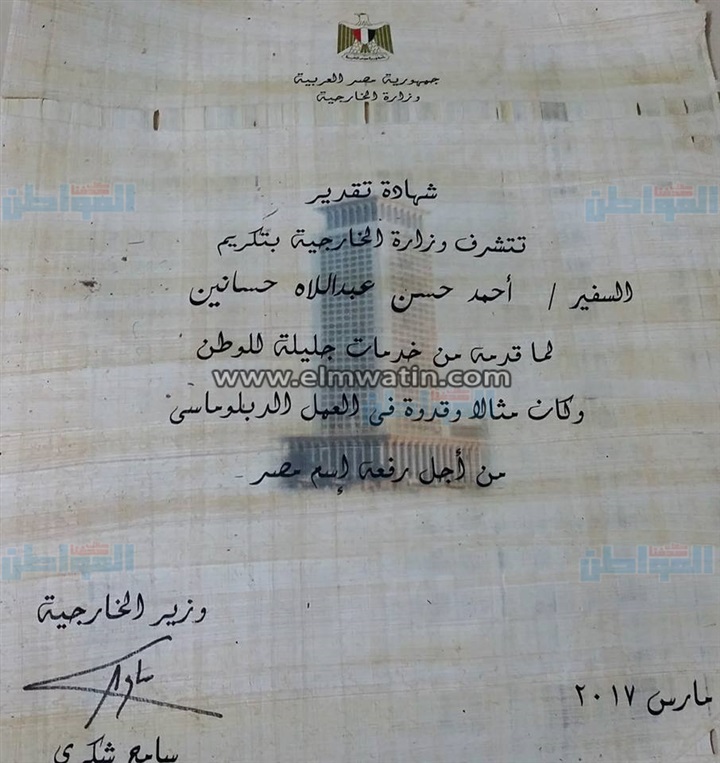 جمهورية مصر العربية
وزارة الخارجية
شهادة تقدير
تتشرف وزارة الخارجية بتكريم
السفير / أحمد حسن عبداللاه حسانين
لما قدمه من خدمات جليلة للوطن
www.elmwatin.com
وكان مثالا وقدوة فى العمل الدبلوماسى
من أجل رفعة إسم مصر
وزير الخارجية
سامح شكرى
مارس ٢٠١٧
المواطن
المواطن
المواطن
المواطن